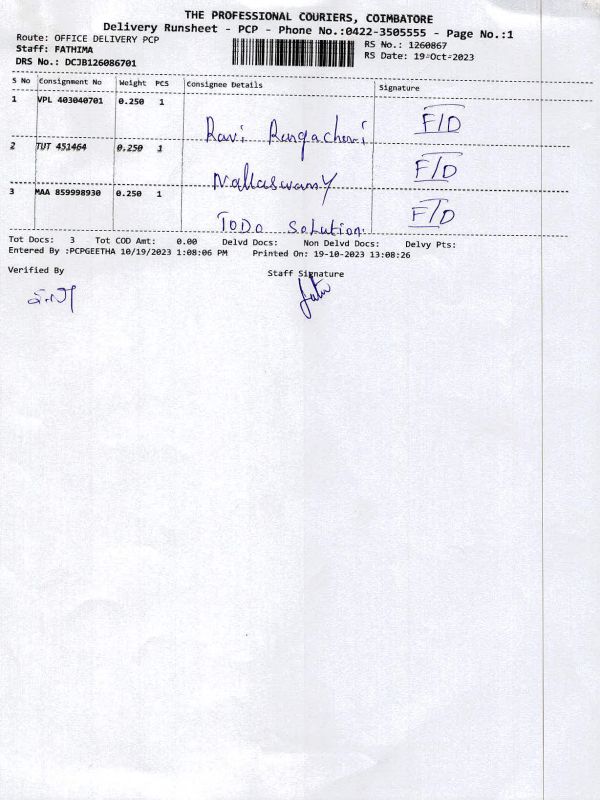 THE PROFESSIONAL COURIERS, COIMBATORE
Delivery Runsheet - PCP - Phone No.:0422-3505555 - Page No.:1
Route: OFFICE DELIVERY PCP
RS No.: 1260867
Staff: FATHIMA
RS Date: 19-Oct-2023
DRS No.: DCJB126086701
S No Consignment No Weight PCS Consignee Details Signature
1 VPL 403040701 0.250 1 F/D
Ravi Rangachari
2 TUT 451464 0.250 1 F/D
Nallaswamy
3 MAA 859998930 0.250 1 F/D
ToDo Solution
Tot Docs: 3 Tot COD Amt: 0.00 Delvd Docs: Non Delvd Docs: Delvy Pts:
Entered By :PCPGEETHA 10/19/2023 1:08:06 PM Printed On: 19-10-2023 13:08:26
Verified By Staff Signature